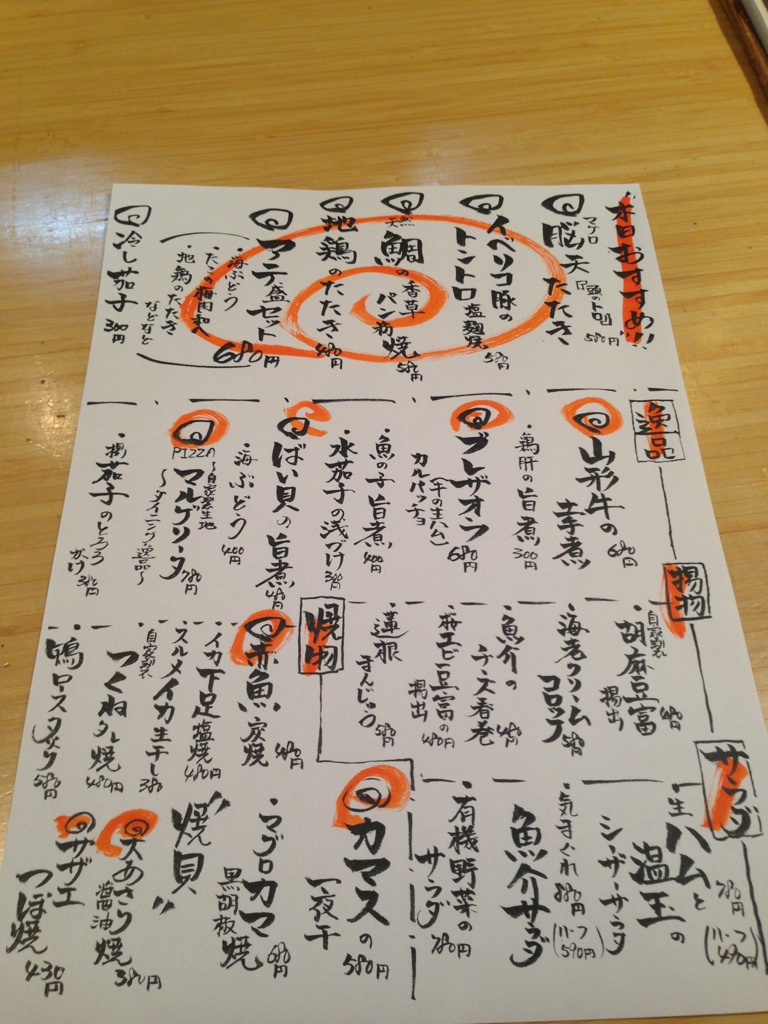 本日おすすめ!!
マグロ
脳天たたき
「頭のトロ」
580円
イベリコ豚の
トントロ塩麹焼
580円
天然
鯛の香草
パン粉焼
580円
地鶏のたたき
480円
マテ盛セット
680円
・海ぶどう
・たこの梅肉和え
・地鶏のたたき
などなど
冷し茄子
300円
逸品
山形牛の
芋煮
680円
・鶏肝の旨煮
300円
ブレザオラ
(牛の生ハム)
カルパッチョ
680円
・魚の子旨煮
400円
・水茄子の浅づけ
ばい貝の旨煮
480円
・海ぶどう
400円
PIZZA
〜自家製生地
マルゲリータ
780円
〜ダイニング逸品〜
・揚茄子のとろろ
かけ
380円
揚物
自家製
・胡麻豆富
揚出
・海老クリーム
コロッケ
580円
・魚介の
チーズ春巻
480円
・桜エビ豆富の
揚出
480円
・蓮根
まんじゅう
580円
焼物
赤魚炭焼
480円
・イカ下足塩焼
480円
・スルメイカ生干し
380
自家製
・つくねタレ焼
480円
・鴨ロースタタキ
580円
サラダ
・生ハムと
温玉の
シーザーサラダ
780円
(ハーフ
490円)
・気まぐれ
魚介サラダ
880円
(ハーフ
590円)
・有機野菜の
サラダ
780円
カマスの
一夜干
580円
・マグロカマ
黒胡椒焼
680円
"焼貝"
大あさり
醤油焼
380円
サザエ
つぼ焼
430円